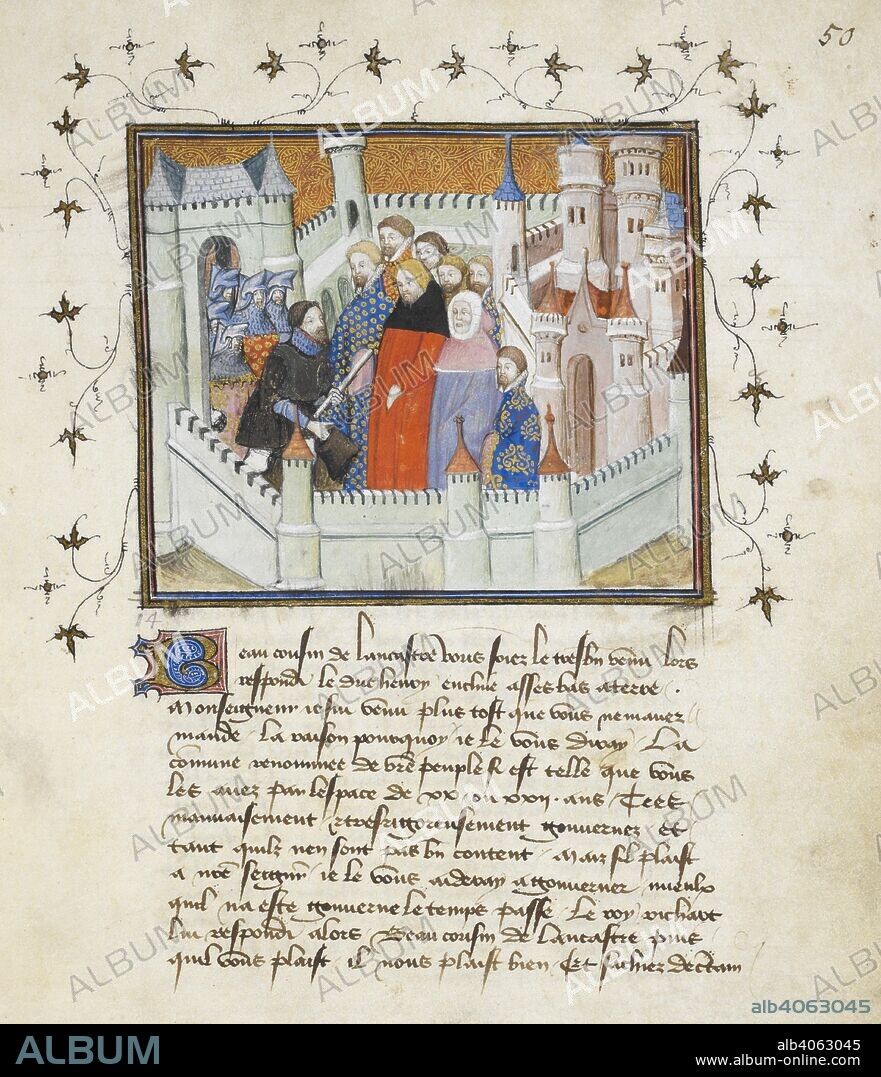 50
14
Beau cousin de lancastre vous soiez le tresbn venu lors
respondi le duc henry encline asses bas a terre .
Monseigneur ie sui venu plus tost que vous ne mavez
mande la raison pourquoy ie le vous diray La
comune renommee de vre peuple si est telle que vous
les avez par lespace de xx ou xxii ans
mauvaisement gouvernez et
tant quilz nen sont pas bn content Mais sil plaist
a nre seigneur ie le vous aideray a gouverner mieulx
quil na este gouverne le temps passe Le roy richart
lui respondi alors Beau cousin de lancastre puis
quil vous plaist il nous plaist bien Et sachiez de
ALBUM
alb4063045
ALBUM
alb4063045
www.album-online.com